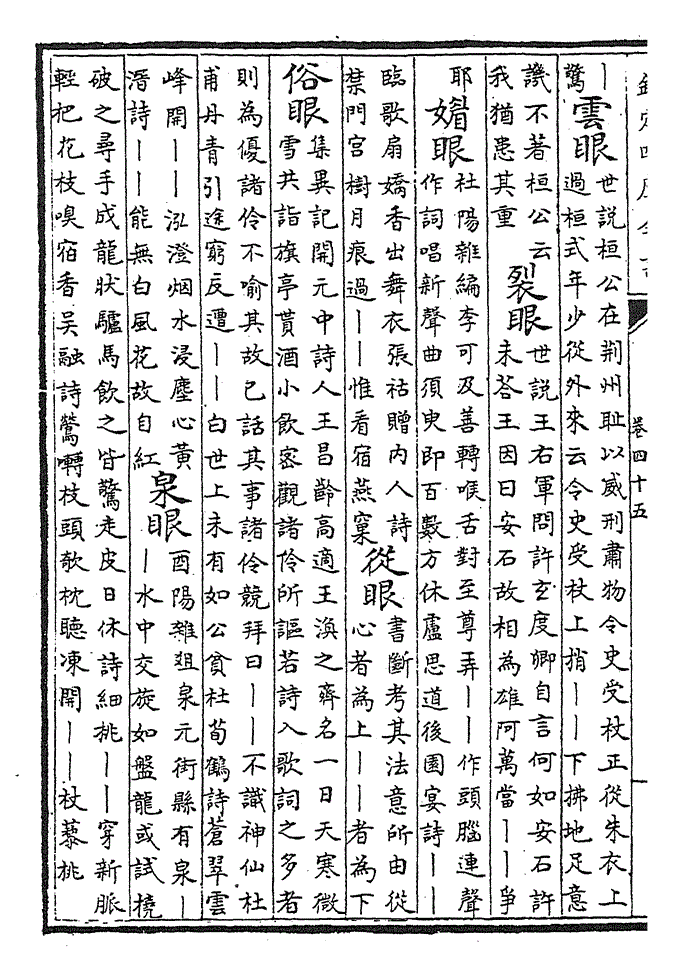 卷四十五
｜
驚
雲眼 世説桓公在荆州耻以威刑肅物令史受杖正從朱衣上
過桓式年少從外來云令史受杖上捎｜｜下拂地足意
譏不著桓公云
我猶患其重
裂眼 世説王右軍問許玄度卿自言何如安石許
未答王因曰安石故相為雄阿萬當｜｜爭
耶
媚眼 杜陽雜編李可及善轉喉舌對至尊弄｜｜作頭腦連聲
作詞唱新聲曲須臾即百數方休盧思道後園宴詩｜｜
臨歌扇嬌香出舞衣張祜贈内人詩
禁門宫樹月痕過｜｜惟看宿燕窠
從眼 書斷考其法意所由從
心者為上｜｜者為下
俗眼 集異記開元中詩人王昌齡高適王渙之齊名一日天寒微
雪共詣旗亭貰酒小飲密觀諸伶所謳若詩入歌詞之多者
則為優諸伶不喻其故已話其事諸伶競拜曰｜｜不識神仙杜
甫丹青引途窮反遭｜｜白世上未有如公貧杜荀鶴詩蒼翠雲
峰開｜｜泓澄烟水浸塵心黄
潛詩｜｜能無白風花故自紅
泉眼 酉陽雜俎泉元街縣有泉｜
｜水中交旋如盤龍或試撓
破之尋手成龍狀驢馬飲之皆驚走皮日休詩細挑｜｜穿新脈
輕把花枝嗅宿香吴融詩鶯囀枝頭欹枕聽凍開｜｜杖藜桃